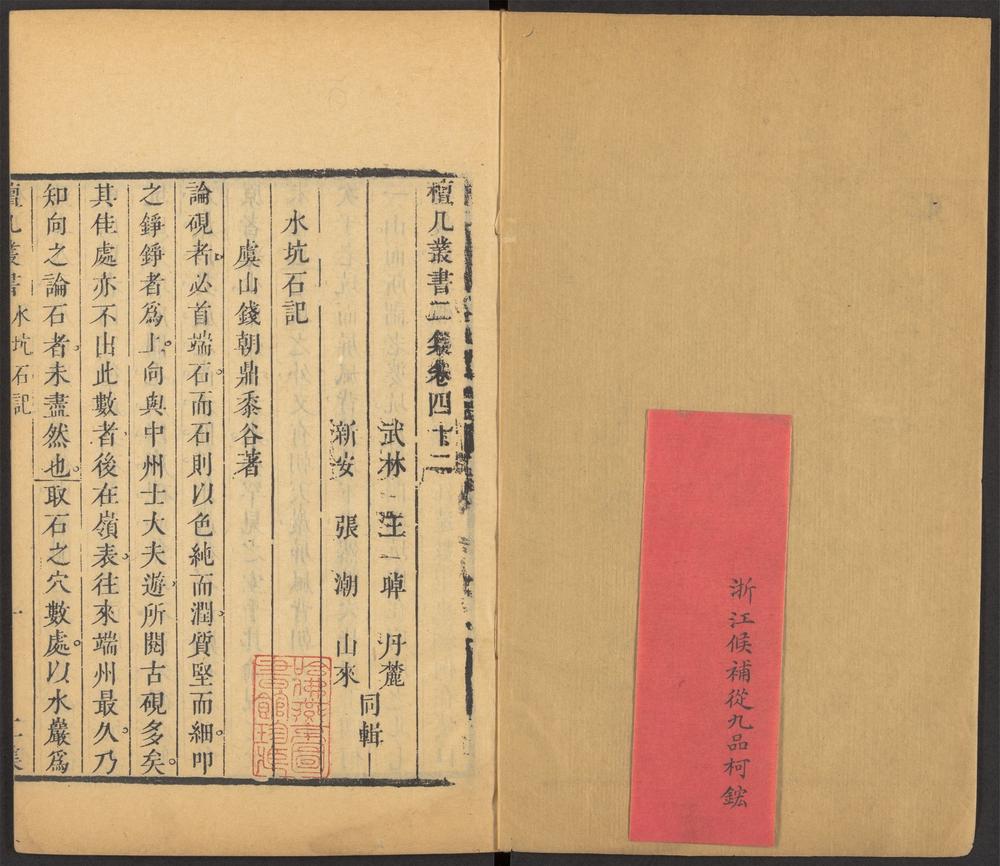 浙江候補從九品柯鋐
檀几叢書二集卷四十二
武林 王晫 丹麓
新安 張潮 山來
同輯
水坑石記
虞山錢朝鼎黍谷著
論硯者必首端石而石則以色純而潤質堅而細叩
之錚錚者爲上向與中州士大夫遊所閱古硯多矣
其佳處亦不出此數者後在嶺表往來端州最久乃
知向之論石者未盡然也取石之穴數處以水巖爲
檀几叢書 水坑石記 一 二集